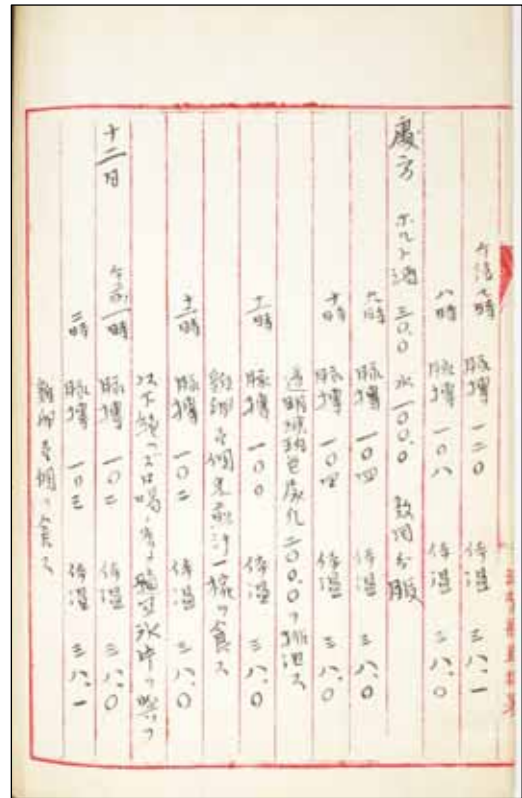 午後七時 脈搏 一二〇 体温 三八、一
八時 脈搏 一〇八 体温 三八、〇
處方 ポルト酒 三〇.〇 水 一〇〇.〇 数回分服
九時 脈搏 一〇四 体温 三八、〇
十時 脈搏 一〇四 体温 三八、〇
透明琥珀色尿 二〇〇.〇ヲ排泄ス
十一時 脈搏 一〇〇 体温 三八、〇
鶏卵 個 一椀ヲ食ス
十二時 脈搏 一〇二 体温 三八、〇
以下 口渇
十二日 午前一時 脈搏 一〇二 体温 三八、〇
二時 脈搏 一〇三 体温 三八、一
鶏卵 個ヲ食ス